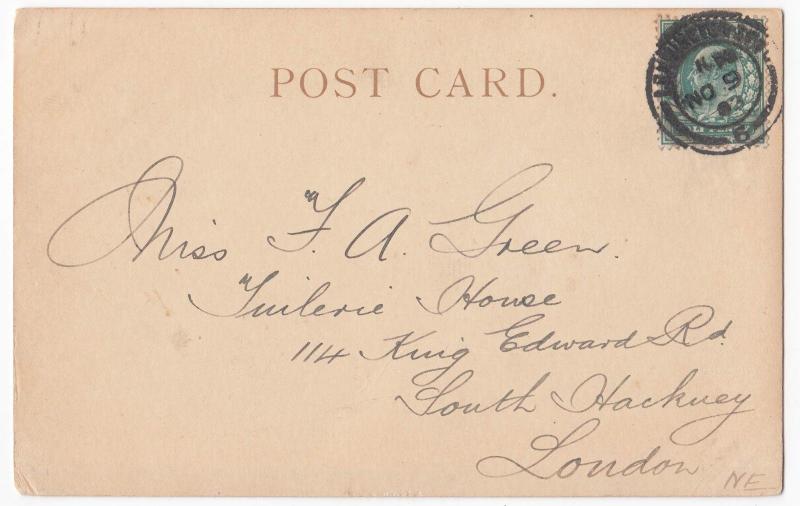 POST CARD.
NO 9
03
5
Miss F. A. Green.
Tuilerie House
114 King Edward Rd.
South Hackney
London
NE